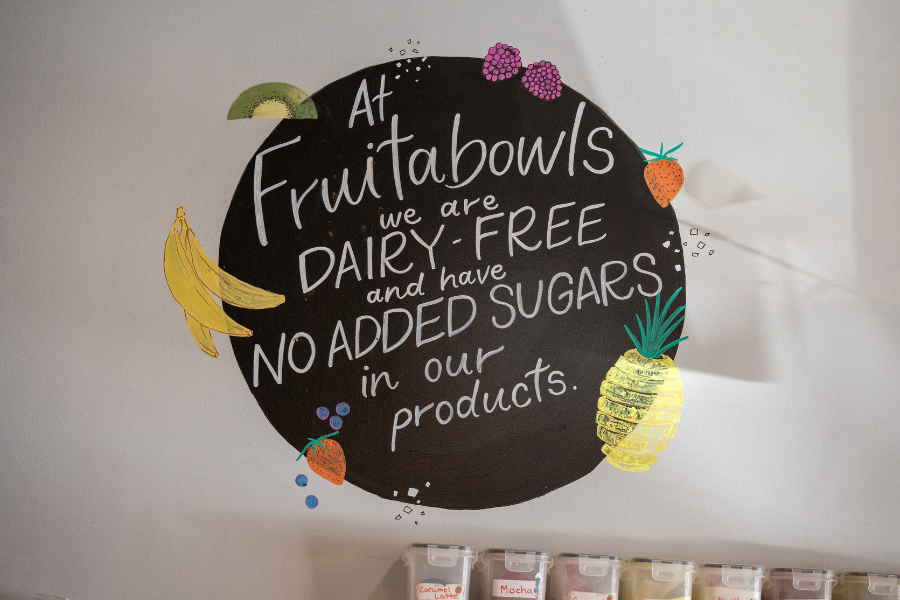 At
Fruitabowls
we are
DAIRY-FREE
and have
NO ADDED SUGARS
in our
products.
Caramel
Latte
Mocha